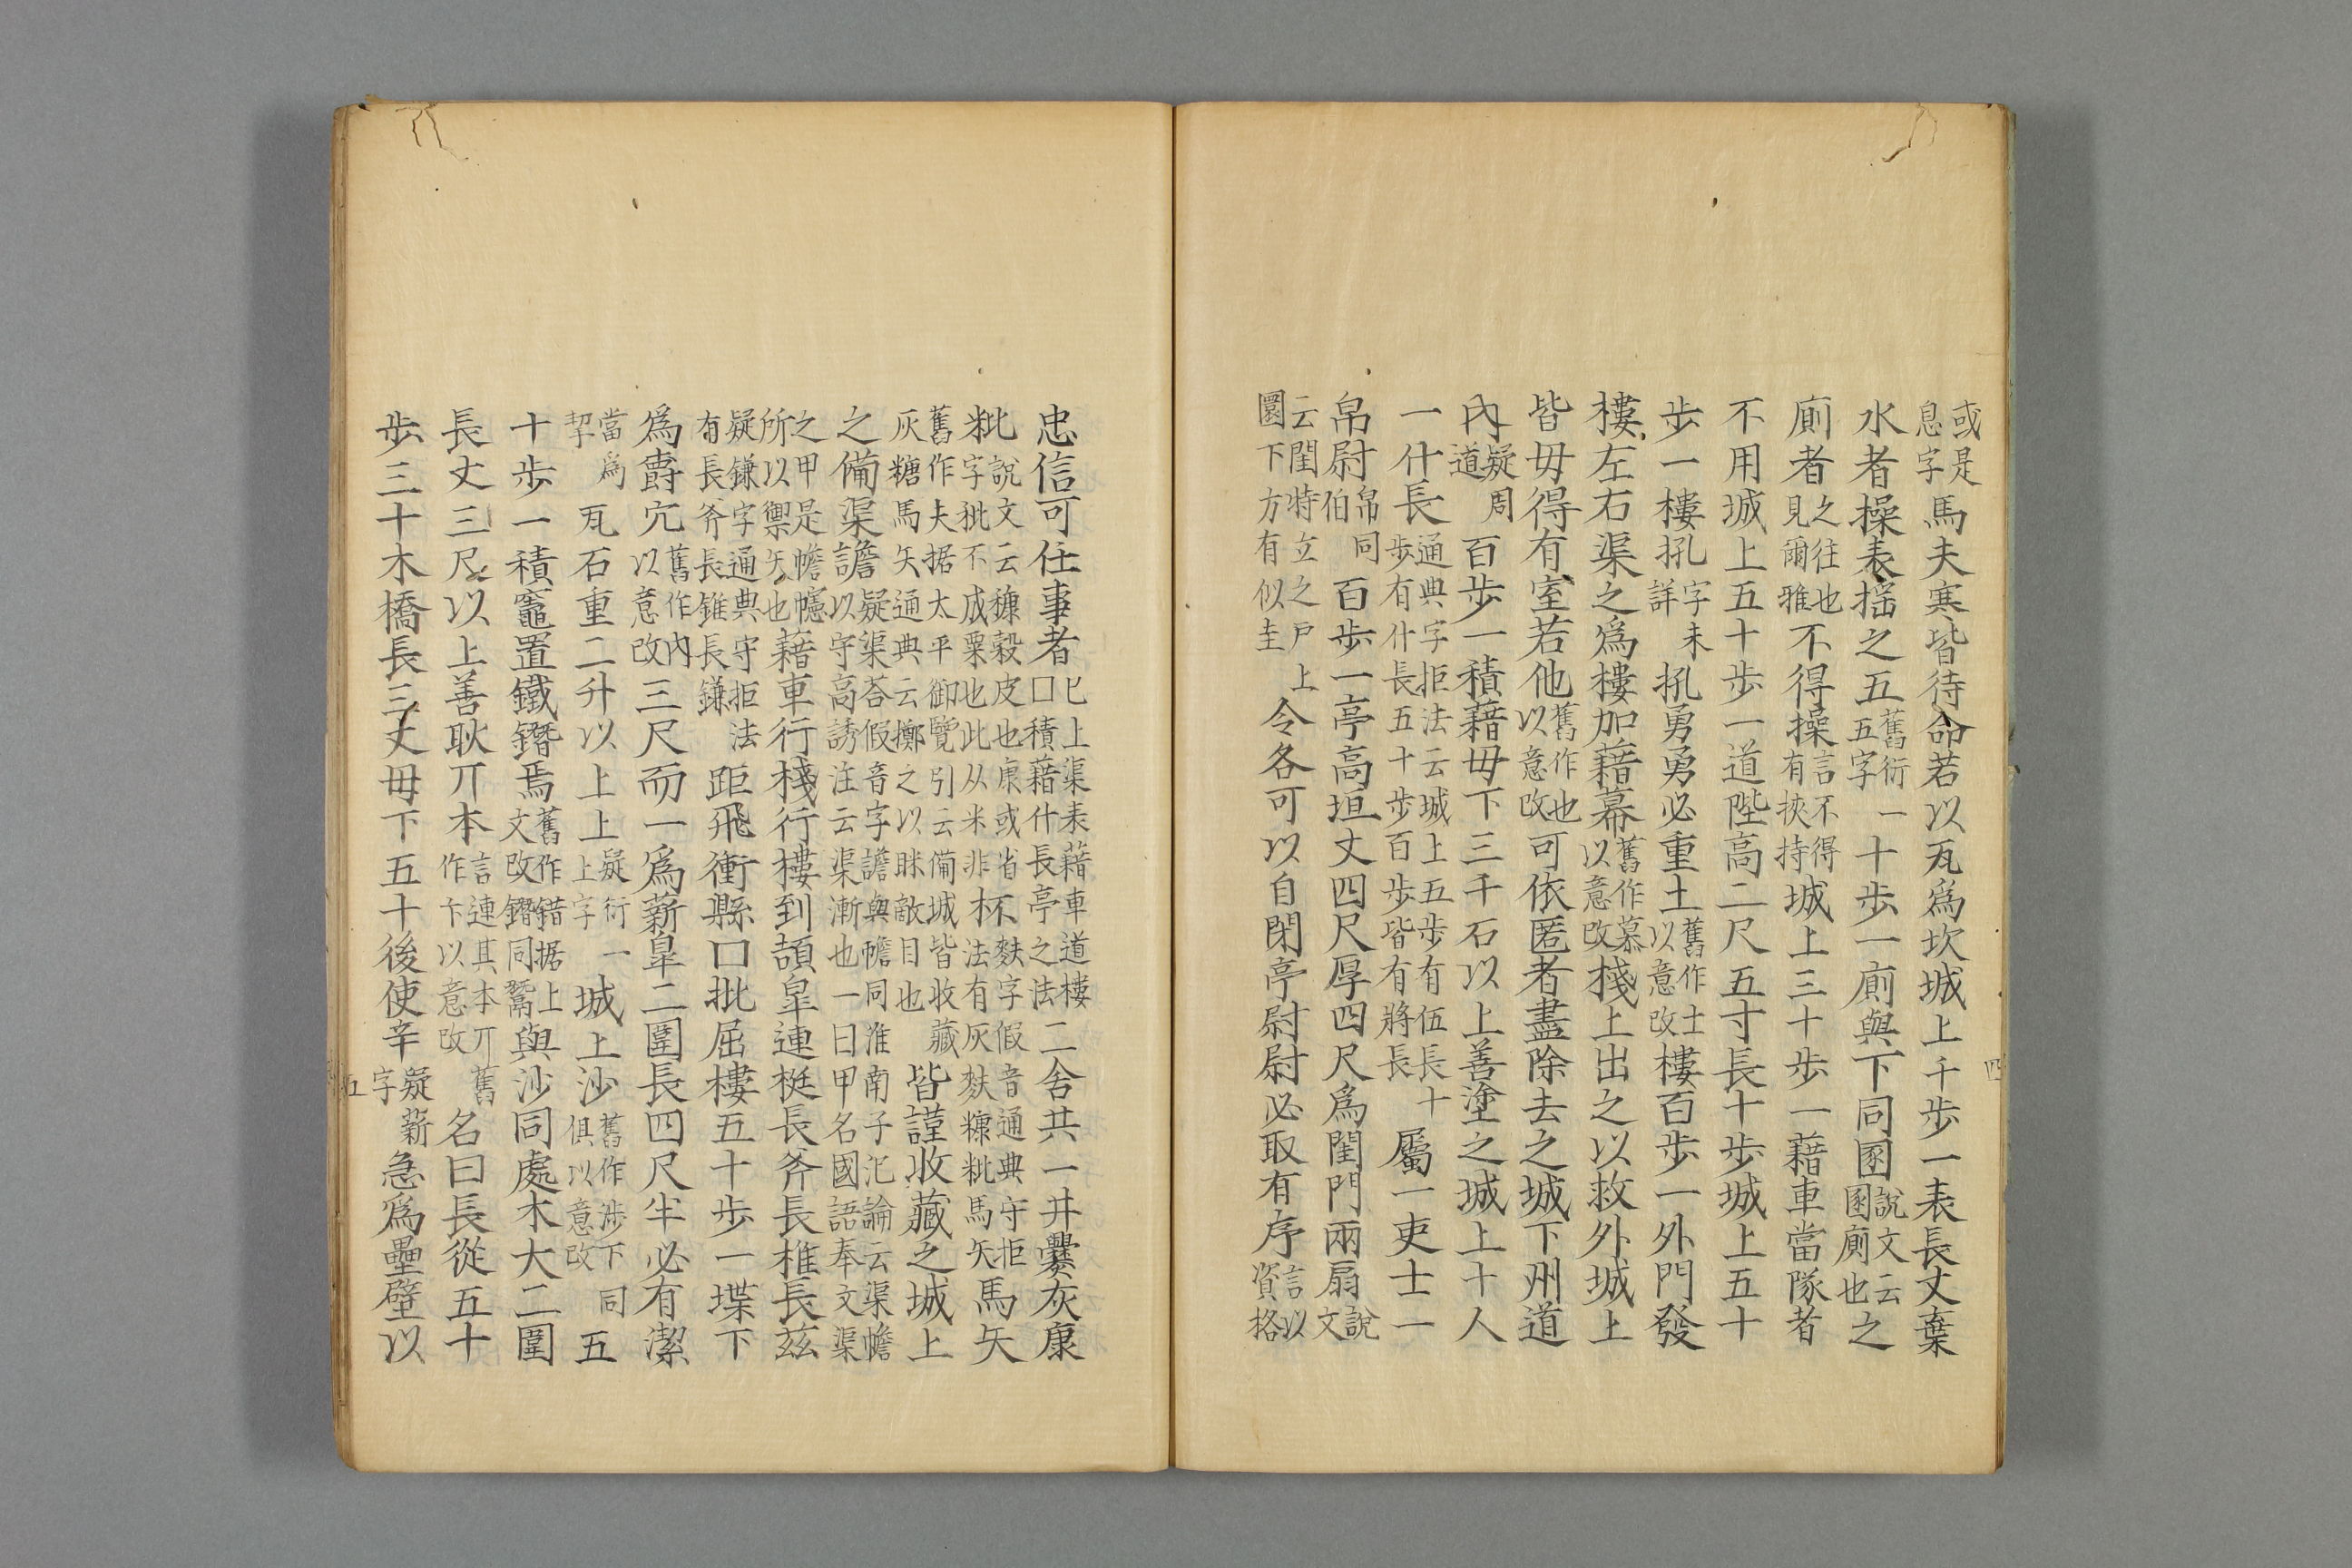 或是息字馬夫寒皆待命若以瓦爲坎城上千步一表長丈棄
水者操表揺之五舊衍一五字十步一廁與下同圂說文云圂廁也之
廁者之往也見爾雅不得操言不得有挾持城上三十步一藉車當隊者
不用城上五十步一道陛高二尺五寸長十步城上五十
步一樓㧉字未詳㧉勇勇必重土舊作士以意改樓百步一外門發
樓左右渠之爲樓加藉幕舊作慕以意改棧上出之以救外城上
皆毋得有室若他舊作也以意改可依匿者盡除去之城下州道
內疑周道百步一積藉毋下三千石以上善塗之城上十人
一什長通典字拒法云城上五步有伍長十步有什長五十步百步皆有將長屬一吏士一
帛尉帛同伯百步一亭高垣丈四尺厚四尺爲閨門兩扇說文
云閨特立之戸上圜下方有似圭令各可以自閉亭尉尉必取有序言以資格
四
忠信可任事者巳上渠表藉車道樓口積藉什長亭之法二舍共一井爨灰康
粃說文云穅穀皮也康或省不麩字假音通典守拒字秕不成粟也此从米非杁法有灰麩糠粃馬矢馬矢
舊作夫据太平御覽引云備城皆收藏灰糖馬矢通典云擲之以眯敵目也皆謹收藏之城上
之備渠譫疑渠荅假音字譫與幨同淮南子氾論云渠幨以守高誘注云渠漸也一曰甲名國語奉文渠
之甲是幨幰所以禦矢也藉車行棧行樓到頡皐連梃長斧長椎長茲
疑鎌字通典守拒法有長斧長錐長鎌距飛衝縣口批屈樓五十步一堞下
爲爵穴舊作內以意改三尺而一爲薪皐二圍長四尺半必有潔
當爲挈瓦石重二升以上上疑衍一上字城上沙舊作涉下同俱以意改五
十步一積竈置鐵鐕焉舊作錯据上文改鐕同鬵與沙同處木大二圍
長丈三尺以上善耿丌本言連其本丌舊作卞以意改名曰長從五十
步三十木橋長三丈毋下五十後使辛疑薪字急爲壘壁以
五